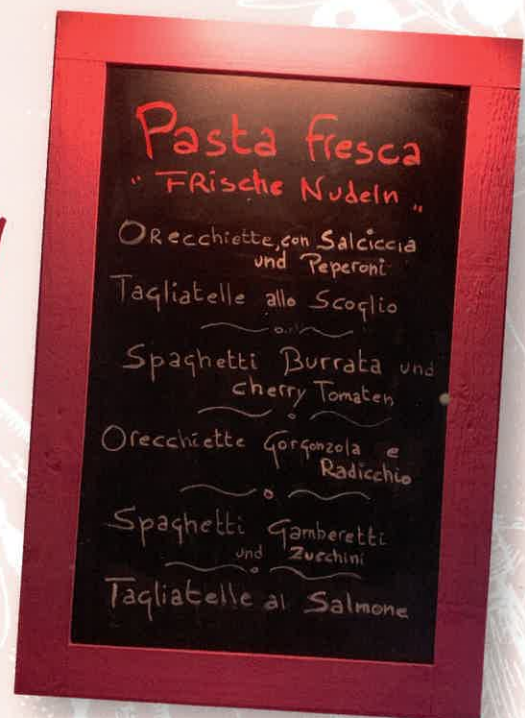 Pasta fresca
"FRische Nudeln"
ORecchiette, con Salciccia
und Peperoni
Tagliatelle allo Scoglio
Spaghetti Burrata und
cherry Tomaten
Orecchiette Gorgonzola e
Radicchio
Spaghetti Gamberetti
und Zucchini
Tagliatelle al Salmone